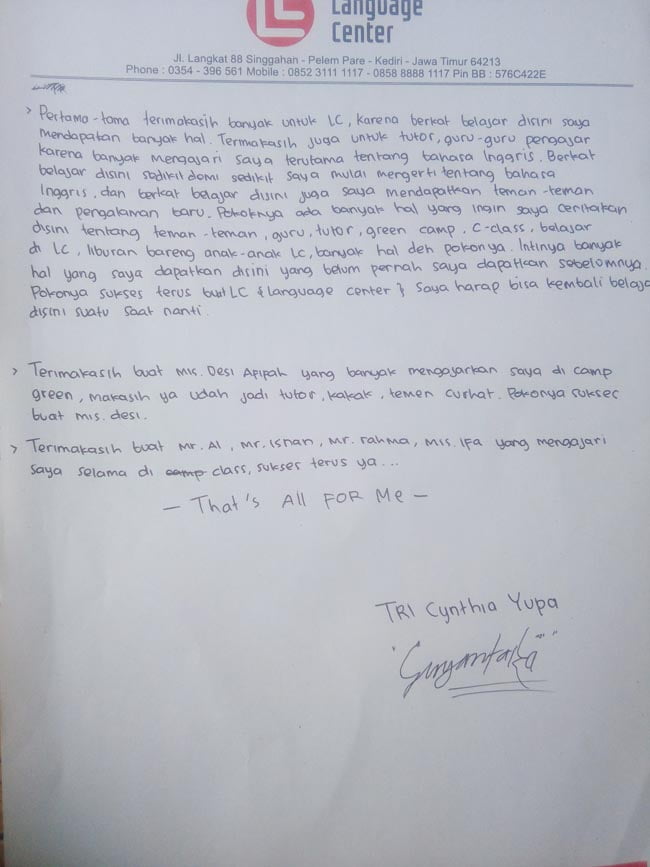 Language
Center
Jl. Langkat 88 Singgahan - Pelem Pare - Kediri - Jawa Timur 64213
Phone : 0354 - 396 561 Mobile : 0852 3111 1117 - 0858 8888 1117 Pin BB : 576C422E
> Pertama-tama terimakasih banyak untuk LC, karena berkat belajar disini saya
mendapatan banyak hal. Termakasih juga untuk tutor, guru-guru pengajar
karena banyak mengajari saya terutama tentang bahasa Inggris. Berkat
belajar disini sedikit demi sedikit saya mulai mengerti tentang bahasa
Inggris, dan berkat belajar disini juga saya mendapatkan teman-teman
dan pengalaman baru. Pokoknya ada banyak hal yang ingin saya ceritakan
disini tentang teman-teman, guru, tutor, green camp, C-class, belajar
di LC, liburan bareng anak-anak LC, banyak hal deh pokonya. Intinya banyak
hal yang saya dapatkan disini yang belum pernah saya dapatkan sebelumnya.
Pokonya sukses terus buat LC { language center } saya harap bisa kembali belaja
disini suatu saat nanti.
> Terimakasih buat mis. Desi Apipah yang banyak mengajarkan saya di camp
green, makasih ya udah jadi tutor, kakak, temen curhat. Pokonya sukses
buat mis. desi.
> Terimakasih buat Mr. Al, Mr. Isnan, Mr. rahma, Mis. Ifa yang mengajari
saya selama di camp class, sukses terus ya...
- That's All FOR Me -
TRI Cynthia Yupa